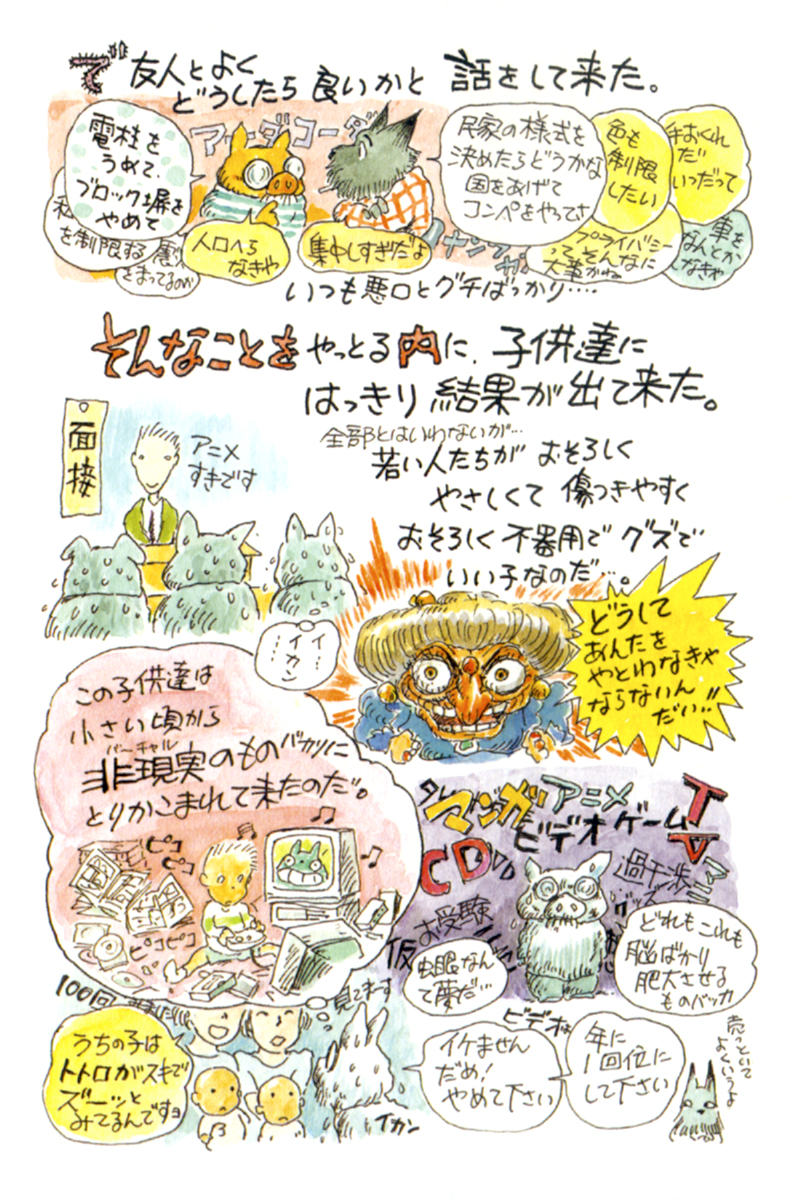 で友人とよく
どうしたら良いかと話をして来た。
電柱を
うめて、
ブロック塀を
やめて
アーダコーダ
民家の様式を
決めたらどうかな
国をあげて
コンペをやってさ
色も
制限
したい
手おくれ
だ
いつだって
を制限する
人口へら
なきゃ
集中しすぎだよ
プライバシー
ってそんなに
大事かね
車を
なんとか
しなきゃ
いつも悪口とグチばっかり‥‥
そんなことをやっとる内に、子供達に
はっきり結果が出て来た。
面接
アニメ
すきです
全部とはいわないが…
若い人たちがおそろしく
やさしくて傷つきやすく
おそろしく不器用でグズで
いい子なのだ…。
イ…
イカン
どうして
あんたを
やとわなきゃ
ならないん
だい!!
この子供達は
小さい頃から
バーチャル
非現実のものバカリに
とりかこまれて来たのだ。
ピコ
ピコ
ピコピコ
マンガ アニメ TV
ビデオ ゲーム
CD
過干渉
グッズ
お受験
虫眼なん
て夢だ…
どれもこれも
脳ばかり
肥大させる
ものバッカ
100回
見てます
うちの子は
トトロがスキで
ズーッと
みてるんですョ
イカン
ビデオは
イケません
だめ!
やめて下さい
年に
1回位に
して下さい
売っといて
よくいうよ